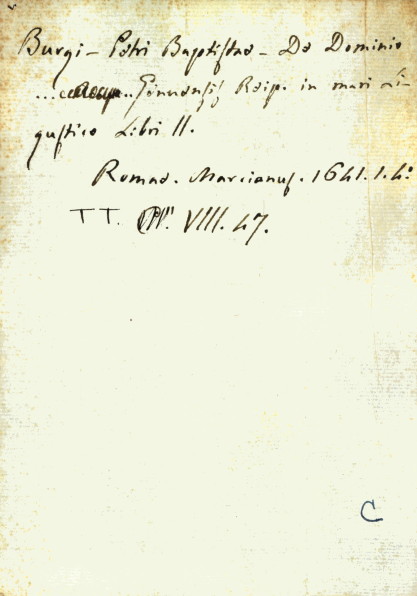 Burgi – Petri Baptistae – De Dominio
... Genuensis Reip. in mari Li-
gustico Libri II.
Romae. Marcianus. 1641. 1. 4°
TT. VIII. 47.
C